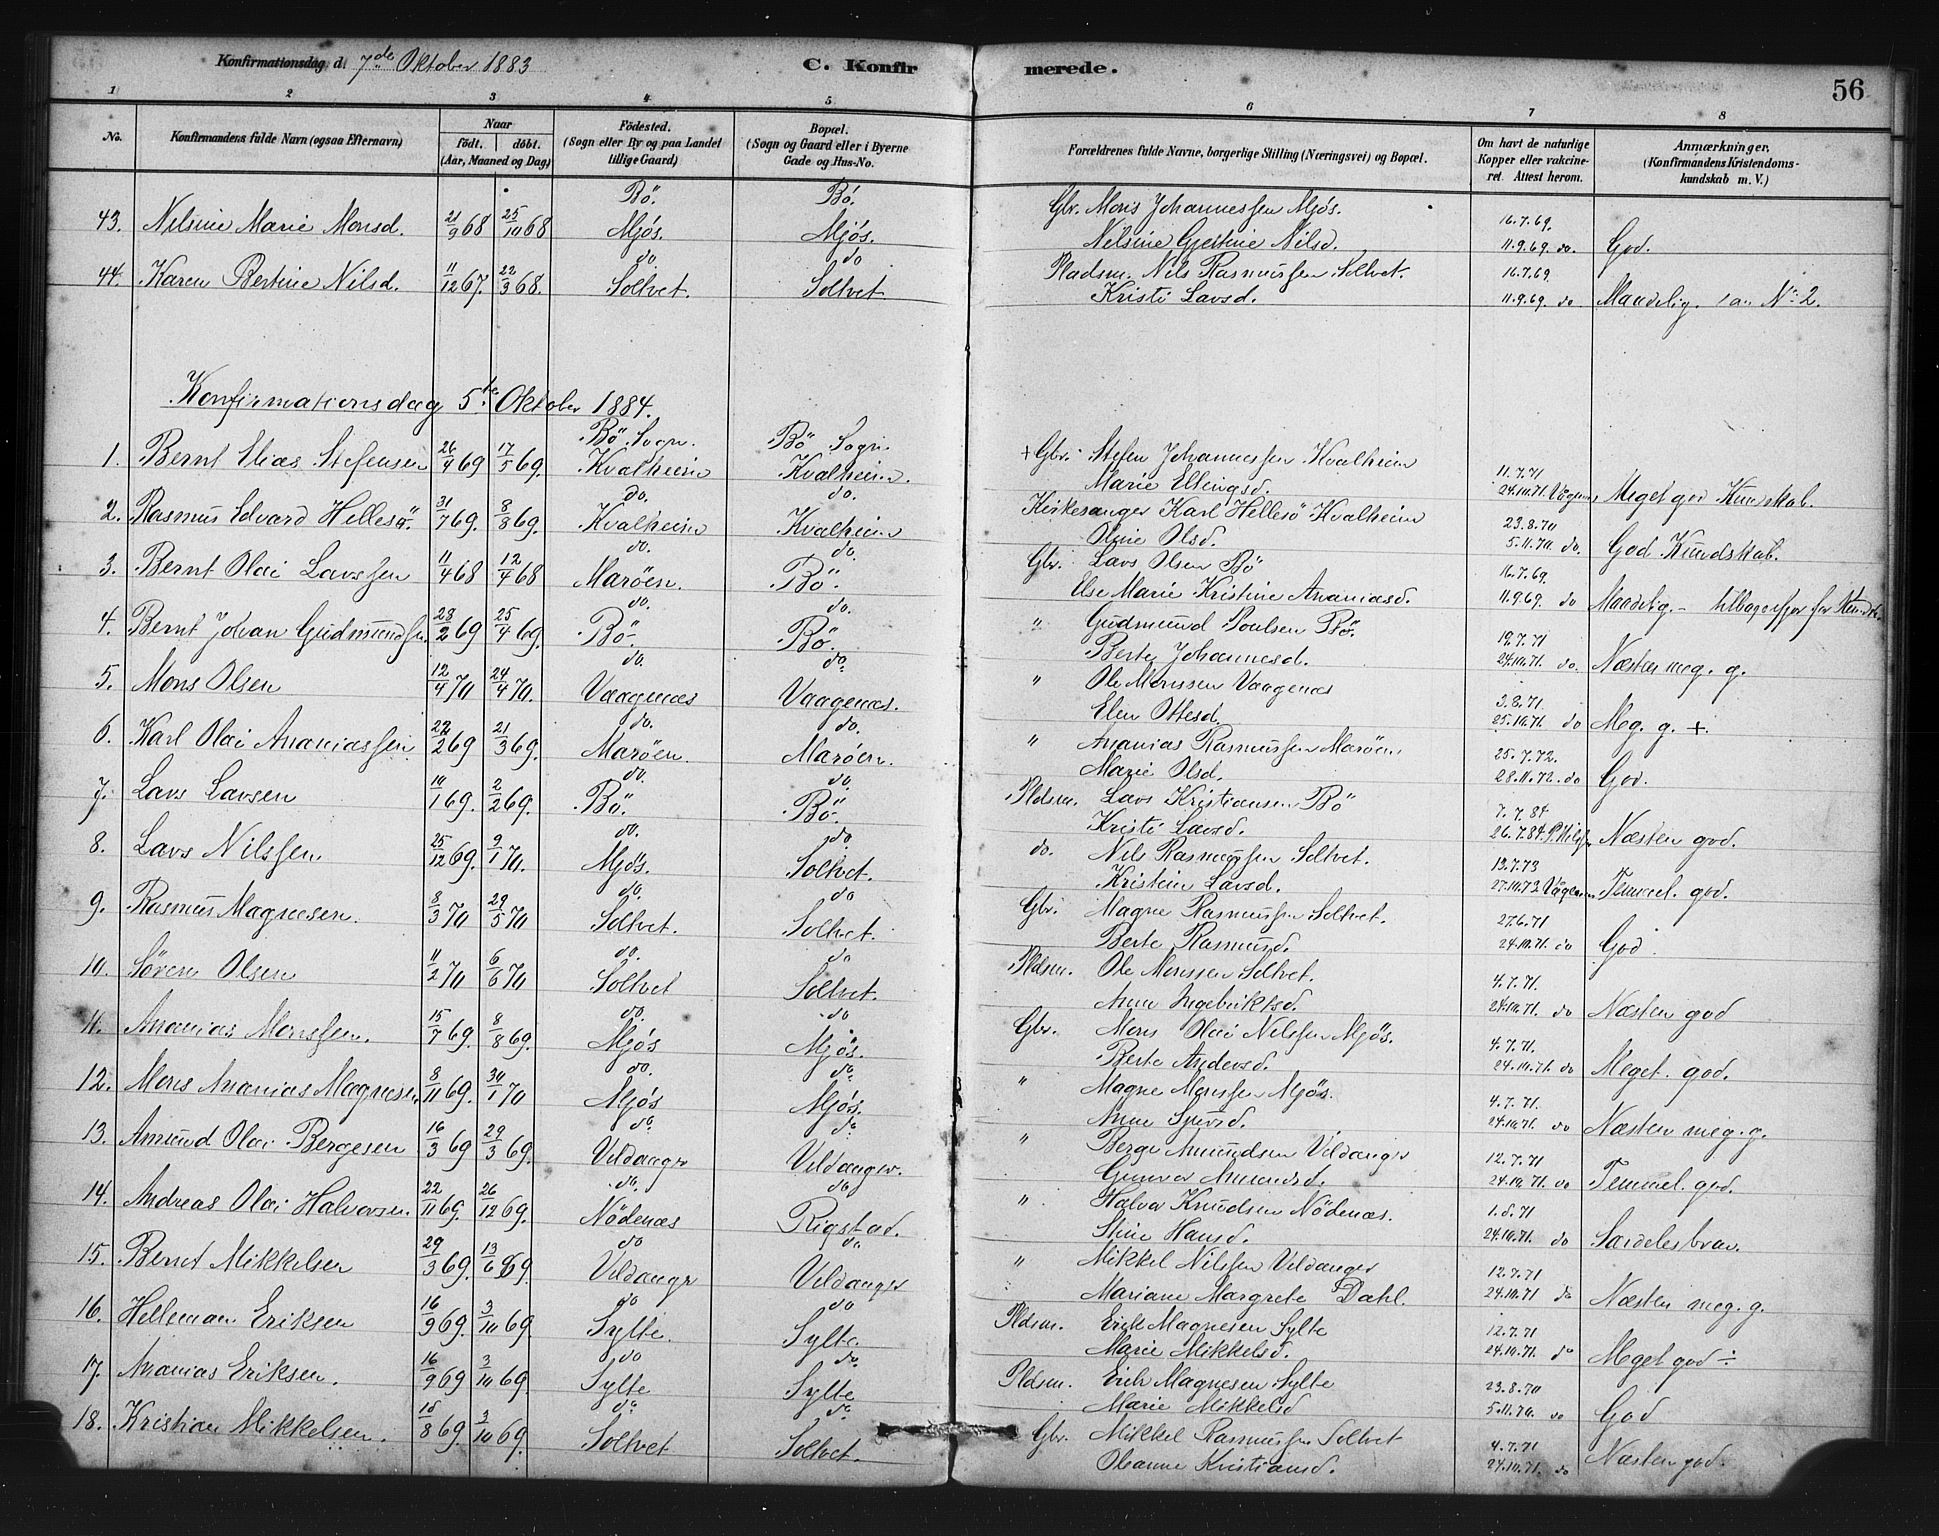 Konfirmationsdag d. 7de Oktober 1883 C. Konfir merede. 56
1 2 3 4 5 6 7 8
No. Konfirmandens fulde Navn (ogsaa Efternavn) Naar födt. döbt. (Aar, Maaned og Dag) Födested. (Sogn eller By og paa Landet tillige Gaard) Bopæl. (Sogn og Gaard eller i Byerne Gade og Hus-No. Forældrenes fulde Navne, borgerlige Stilling (Næringsvei) og Bopæl. Om havt de naturlige Kopper eller vakcineret. Attest herom. Anmærkninger, (Konfirmandens Kristendomskundskab m. V.)
Bö. Bö. Gbr. Mons Johannessen Mjös. 16.7.69.
43. Nilsine Marie Monsd. 21/9 68 25/10 68 Mjös. Mjös. Nilsine Gjertine Nilsd. 11.9.69. do God.
do do Pladsm. Nils Rasmussen Soltvet. 16.7.69.
44. Karen Bertine Nilsd. 11/12 67. 22/3 68. Soltvet. Soltvet Kristi Lavsd. 11.9.69. do Maadelig. No 2.
Konfirmationsdag 5te Oktober 1884.
Bö Sogn. Bö Sogn. + Gbr. Stefen Johannessen Kvalheim 11.7.71
1. Bernt Elias Stefensen 26/4 69 17/5 69. Kvalheim Kvalheim. Marie Ellingsd. 24.10.71. Meget god Kundskab.
do. do. Kirkesanger Karl Hellesö Kvalheim 23.8.70
2. Rasmus Edvard Hellesö. 31/7 69. 8/8 69. Kvalheim Kvalheim Oline Olsd. 5.11.70. do. God Kundskab.
do. do. Gbr. Lavs Olsen Bö 16.7.69
3. Bernt Olai Lavssen 11/4 68 12/4 68 Maröen. Bö. Else Marie Kristine Ananiasd. 11.9.69. do Maadelig.
do. do. " Gudmund Poulsen Bö. 19.7.71
4. Bernt Johan Gudmundsen 28/2 69 25/4 69. Bö Bö. Berte Johannesd. 24.10.71. do. Næsten meg. g.
do. do. " Ole Monssen Vaagenæs 3.8.71.
5. Mons Olsen 12/4 70 24/4 70. Vaagenæs Vaagenæs. Elen Ottesd. 25.10.71. do Meg. g. +.
do. do. " Ananias Rasmussen Maröen 25.7.72.
6. Karl Olai Ananiassen 22/2 69 21/3 69. Maröen. Maröen. Marie Olsd. 28.11.72. do God.
do. do. Pldsm. Lavs Kristiansen Bö 7.7.84
7. Lavs Lavsen 10/1 69. 2/2 69. Bö. Bö. Kristi Lavsd. 26.7.84. Næsten god.
do. do. do. Nils Rasmussen Soltvet. 13.7.73
8. Lavs Nilssen. 25/12 69. 9/1 70. Mjös. Soltvet. Kristein Lavsd. 27.10.73 Temmel. god.
do. do Gbr. Magne Rasmussen Soltvet. 27.6.71
9. Rasmus Magnesen. 8/3 70 29/5 70 Soltvet. Soltvet. Berte Rasmusd. 24.10.71. do God.
do. do Pldsm. Ole Monssen Soltvet. 4.7.71.
10. Sören Olsen 11/2 70 6/6 70 Soltvet Soltvet. Anne Ingebriktsd. 24.10.71. do Næsten god
do. do Gbr. Mons Olai Nilssen Mjös. 4.7.71.
11. Ananias Monssen. 15/7 69. 8/8 69. Mjös Mjös. Berte Andersd. 24.10.71. do Meget. god.
do. do. " Magne Monssen Mjös. 4.7.71.
12. Mons Ananias Magnesen 8/11 69. 30/1 70 Mjös Mjös. Anne 24.10.71. do Næsten meg. g.
do. do. " Berge Amundsen Vildanger 12.7.71
13. Amund Olai Bergesen 16/3 69 29/3 69. Vildanger Vildanger. Gunvor Amundsd. 24.10.71. do Temmel. god.
do. do " Halvor Knudsen Nödenæs. 1.8.71
14. Andreas Olai Halvorsen. 22/11 69. 26/12 69. Nödenæs Rigstad. Stine Hansd. 24.10.71. do Særdeles brav.
do do " Mikkel Nilssen Vildanger 12.7.71
15. Bernt Mikkelsen 29/3 69. 13/6 69. Vildanger Vildanger Mariane Margrete Dahl. 24.10.71 do Næsten meg. g.
do do Pldsm. Erik Magnesen Sylte 12.7.71
16. Helleman Eriksen 16/9 69. 3/10 69. Sylte. Sylte. Marie Mikkelsd. 24.10.71. do Meget god ÷
do do. Pldsm. Erik Magnesen Sylte 23.8.70
17. Ananias Eriksen. 16/9 69 3/10 69. Sylte Sylte Marie Mikkelsd 5.11.70. do God
do do. Gbr. Mikkel Rasmussen Soltvet 4.7.71
18. Kristian Mikkelsen. 15/8 69. 3/10 69. Soltvet Soltvet. Oleanne Kristiansd. 24.10.71. do Næsten god.